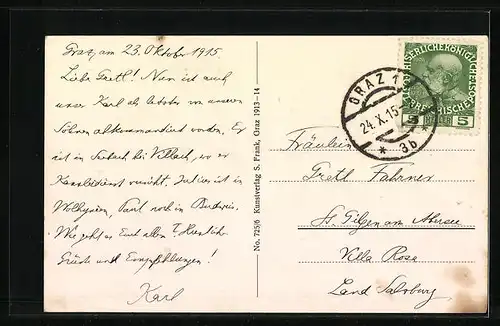 Graz, am 23. Oktober 1915.
Liebe Gretl! Nun ist auch
unser Karl als letzter von unseren
Söhnen abkommandiert worden. Er
ist in Seebach bei Villach, wo er
Kanzleidienst versieht. Julius ist in
Wolhynien, noch in Budweis.
Wie geht es Euch allen? Herzliche
Grüße und Empfehlungen!
Karl
No. 725/6 Kunstverlag S. Frank, Graz 1913-14
GRAZ 1
24.X.15
* 3b *
5 HELLER 5
Fräulein
Gretl Fahrner
St. Gilgen am Abersee
Villa Rosa
Land Salzburg